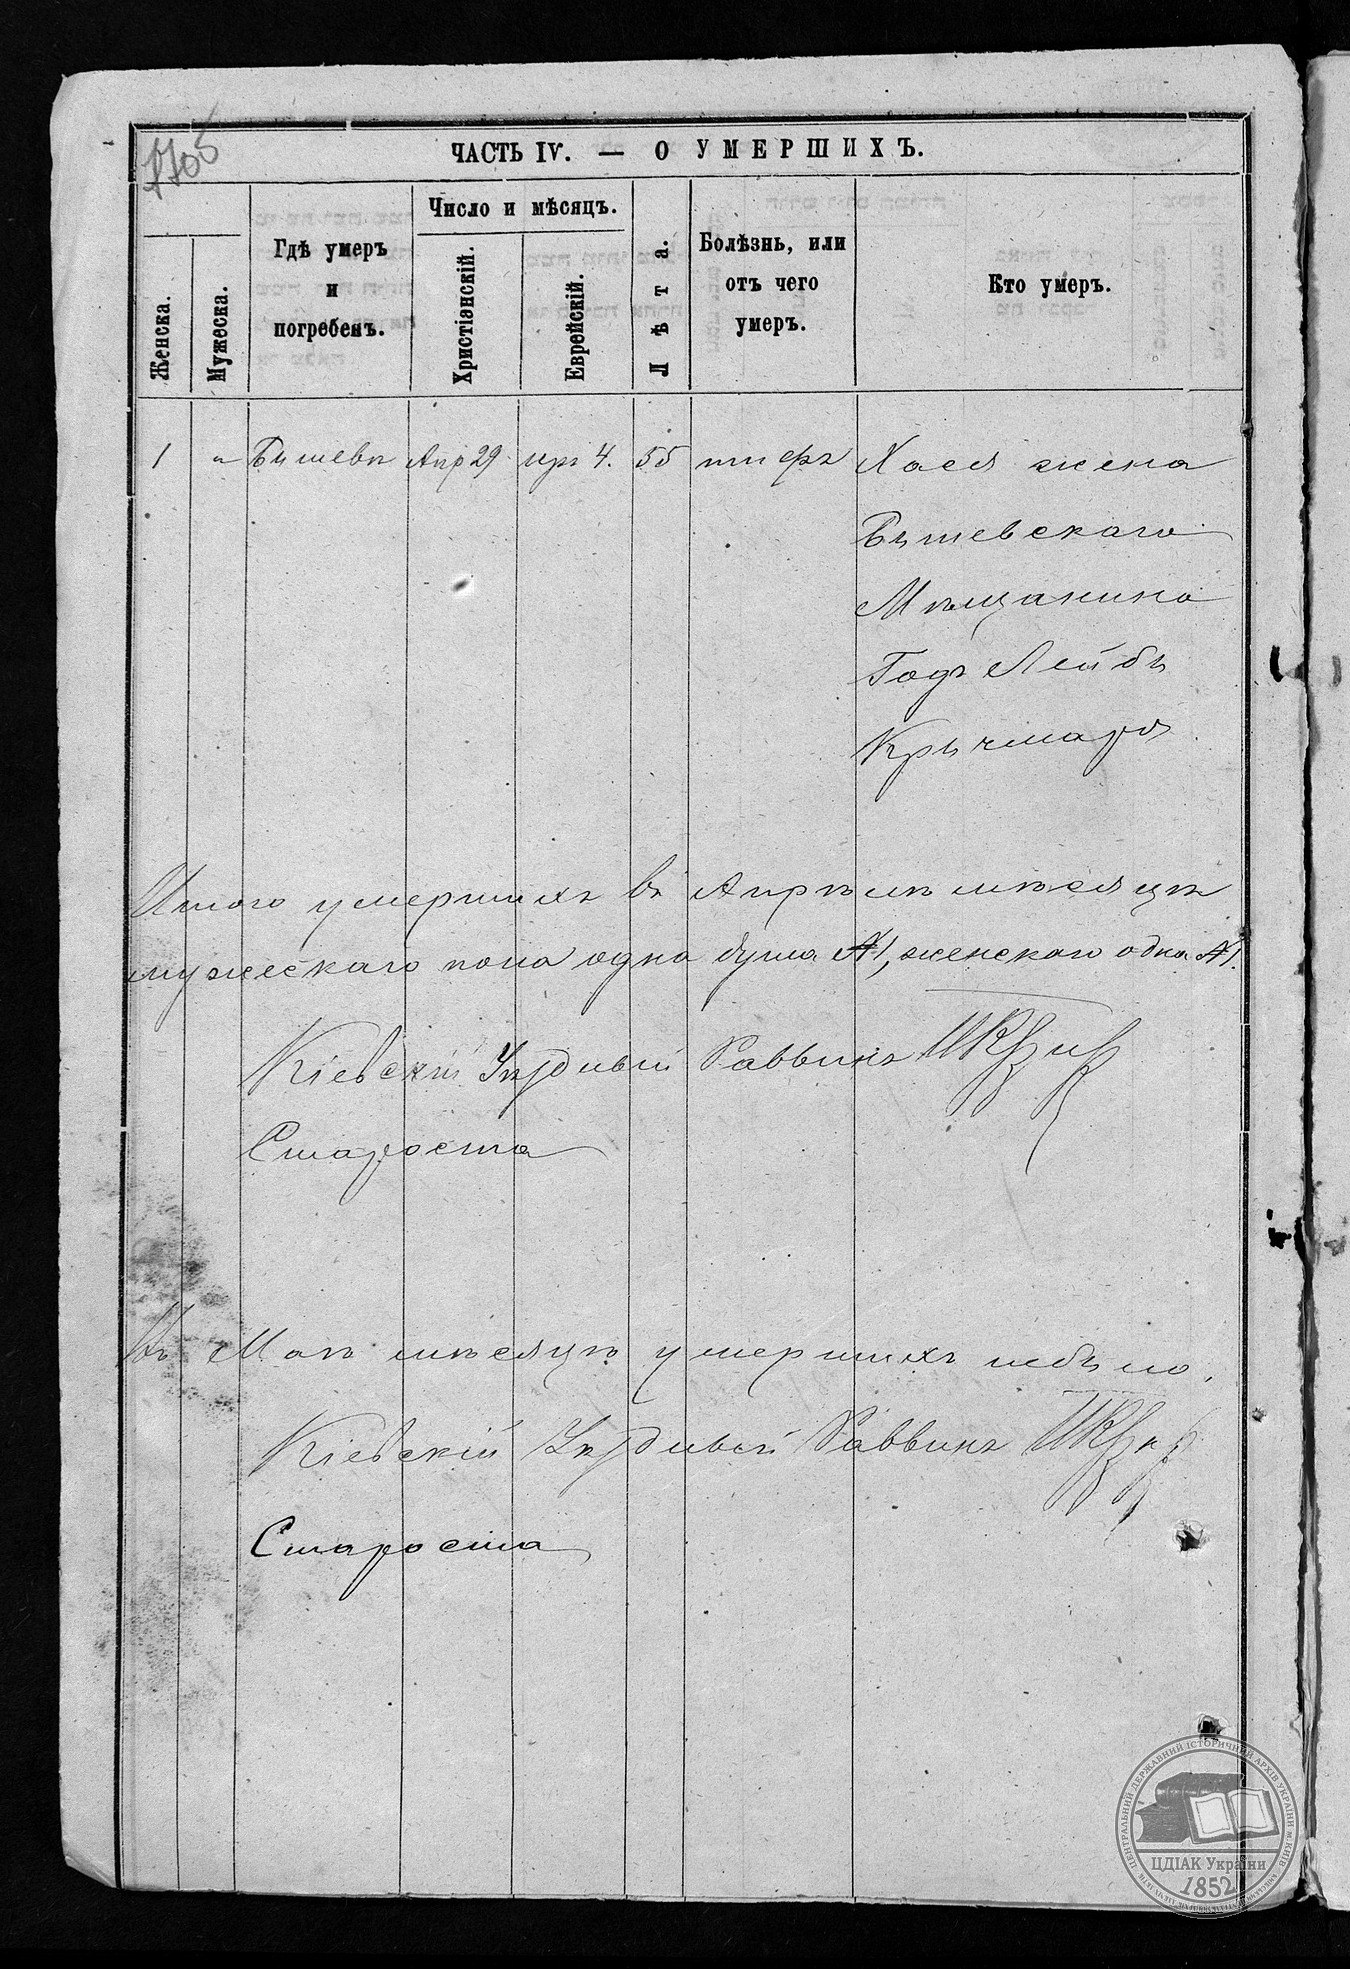 ЧАСТЬ IV. — О УМЕРШИХЪ.
Женска.
Мужеска.
Гдѣ умеръ
и
погребенъ.
Число и мѣсяцъ.
Христіанскій.
Еврейскій.
Лѣта.
Болѣзнь, или
отъ чего
умеръ.
Кто умеръ.
1 „ Бышевъ Апр 29 іяръ 4. 55 тифъ Хася жена
Бышевскаго
Мѣщанина
Годъ Лейбы
Крычмаря
Итого умершихъ въ Апрѣлѣ мѣсяцѣ
мужескаго пола одна душа №1, женскаго одна №1.
Кіевскій Уѣздный Раввинъ
Староста
Въ Маѣ мѣсяцѣ умершихъ небыло.
Кіевскій Уѣздный Раввинъ
Староста
ЦЕНТРАЛЬНИЙ ДЕРЖАВНИЙ ІСТОРИЧНИЙ АРХІВ УКРАЇНИ м. КИЇВ
ЦДІАК України
1852